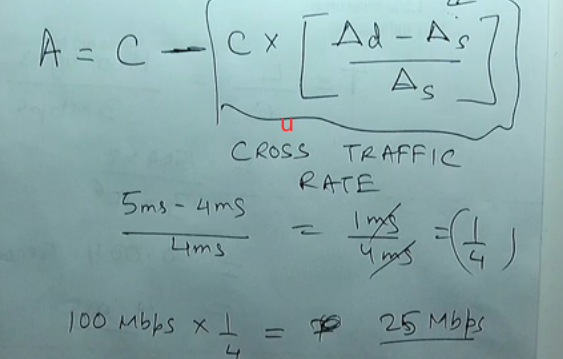 A = C - C × [ Δd - Δs / Δs ]
u
CROSS TRAFFIC
RATE
5ms - 4ms / 4ms = 1ms / 4ms = ( 1 / 4 )
100 Mbps × 1 / 4 = 25 Mbps